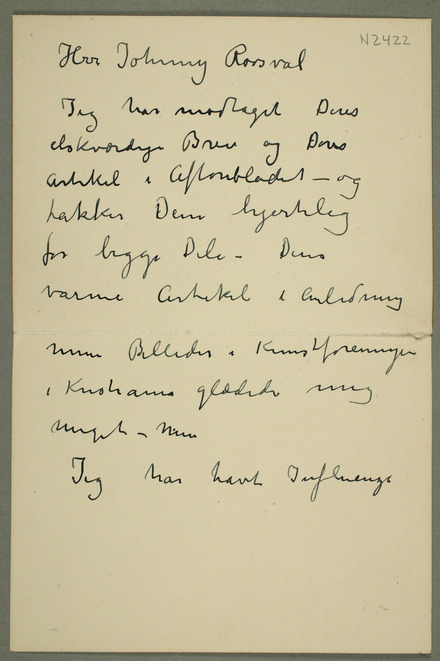 N2422
Herr Johnny Roosval
Jeg har modtaget Deres
elskværdige Brev og Deres
Artikel i Aftonbladet – og
takker Dem hjertelig
for begge Dele – Deres
varme Artikel i Anledning
mine Billeder i Kunstforeningen
i Kristiania glædede mig
meget – Men
Jeg har havt Influenza